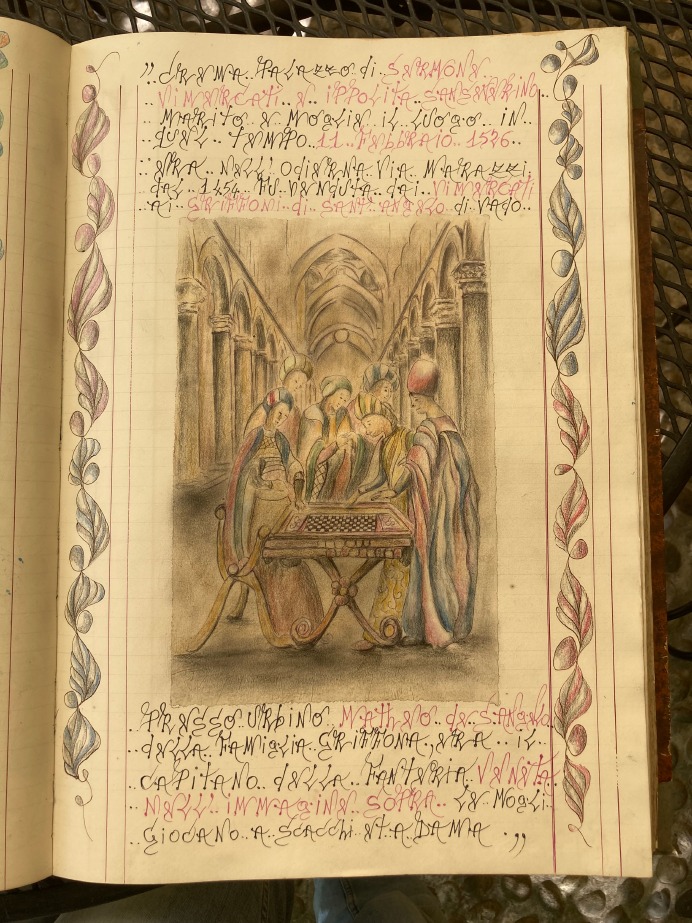 „ CREMA. PALAZZO di SERMONE
VIMERCATI E IPPOLITA SANSEVERINO..
MARITO E MOGLIE IL LUOGO IN
QUEL TEMPO.. 11 FEBBRAIO 1526..
ERA NELL' ODIERNA VIA MATAZZI.
DAL 1454 FU VENDUTA DAI VIMERCATI
AI GRIFFONI di SANT' ANGELO di VADO..
PRESSO URBINO MATHEO DE S. ANGELO
DELLA FAMIGLIA GRIFFONA, ERA.. IL
CAPITANO DELLA FANTERIA VENETA
NELL' IMMAGINE SOPRA.. LE MOGLI
GIOCANO.. A.. SCACCHI ET A DAMA.. „